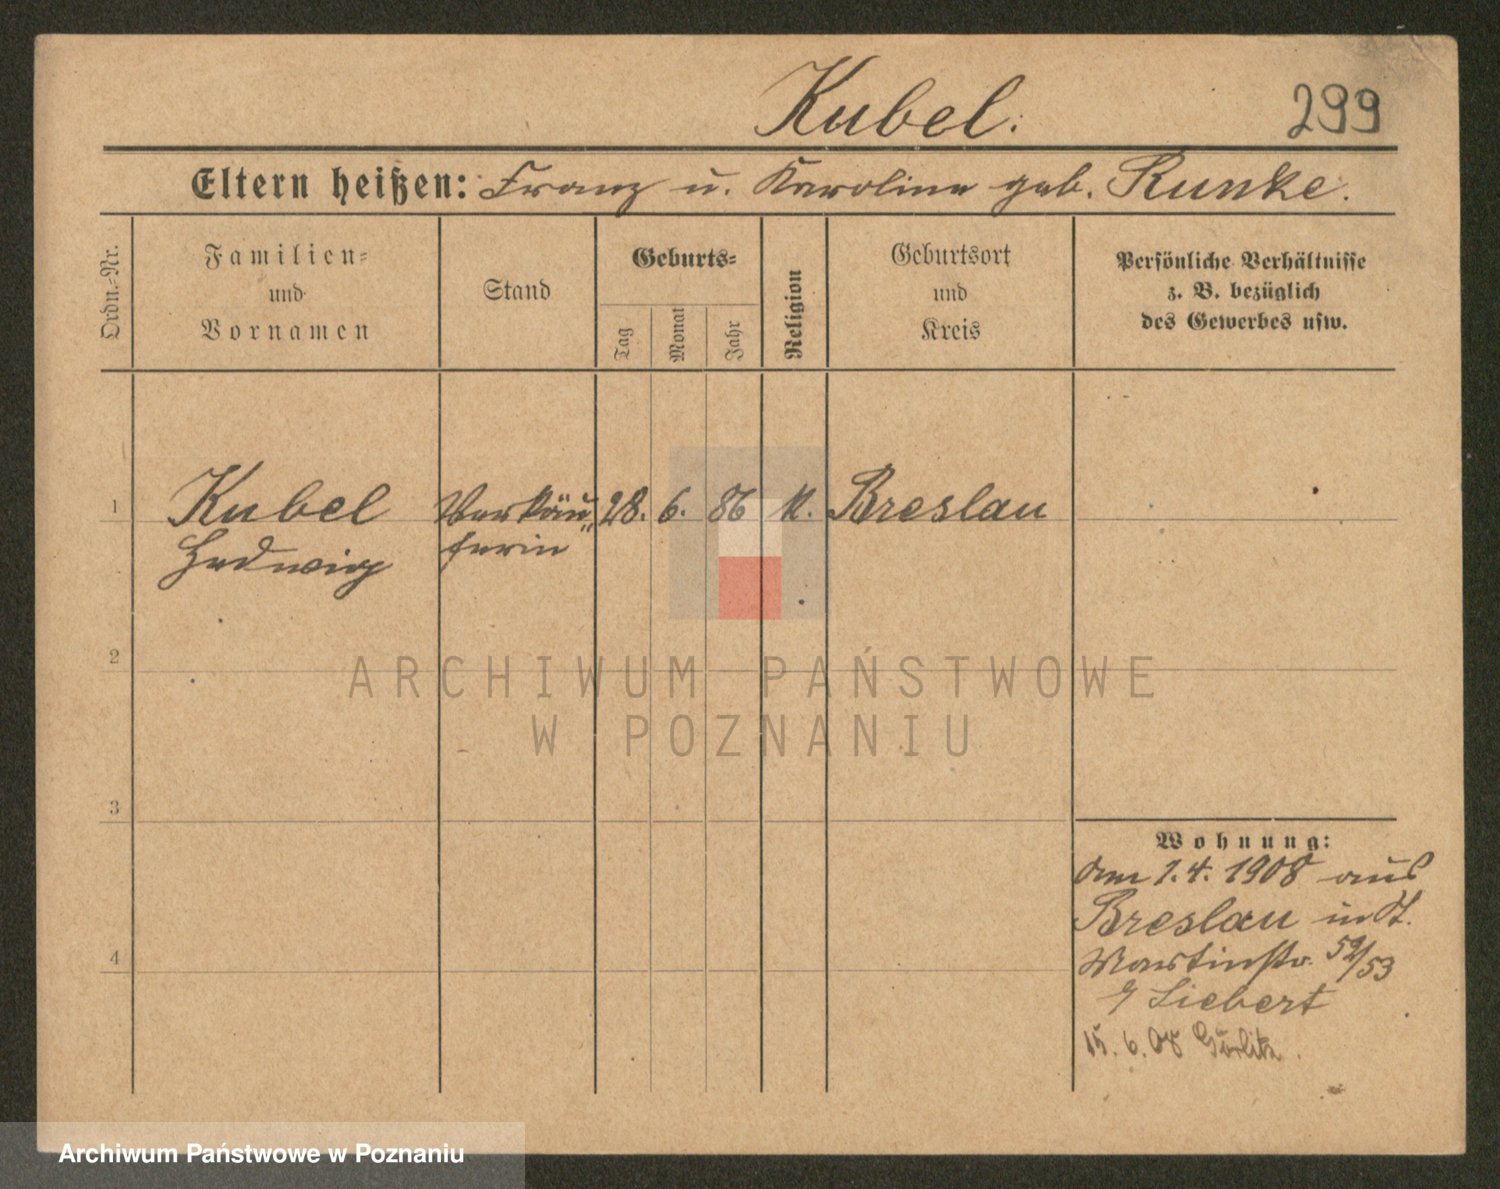 Kubel.
299
Eltern heißen: Franz u. Karoline geb. Runke.
Ordn.-Nr.
Familien-
und
Vornamen
Stand
Geburts-
Tag
Monat
Jahr
Religion
Geburtsort
und
Kreis
Persönliche Verhältnisse
z. B. bezüglich
des Gewerbes usw.
1
Kubel
Hedwig
Verkäu„
ferin
28.
6.
86
k.
Breslau
2
3
4
Wohnung:
am 1.4.1908 aus
Breslau in St.
Martinstr. 52/53
Liebert
15. 6. 08 Görlitz.
ARCHIWUM PAŃSTWOWE
W POZNANIU
Archiwum Państwowe w Poznaniu